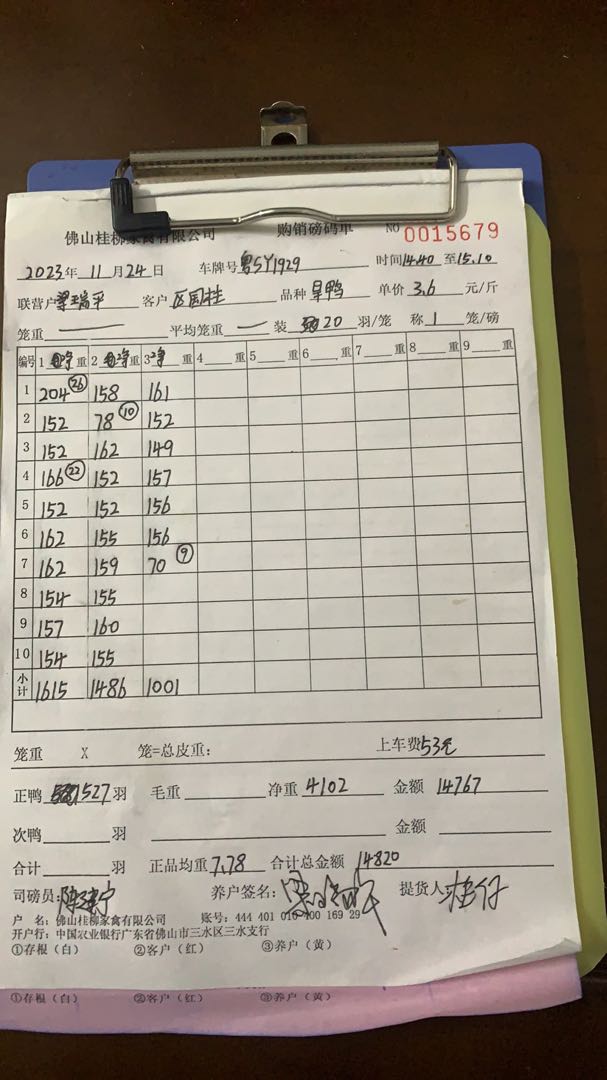 佛山桂柳家禽有限公司 购销磅码单 NO 0015679
2023年 11月24日 车牌号粤SY1929 时间14.40至15.10
联营户梁瑞平 客户 区国桂 品种 旱鸭 单价 3.6 元/斤
笼重 — 平均笼重 — 装 20 羽/笼 称 1 笼/磅
编号 1 净重 2 净重 3净 重 4 重 5 重 6 重 7 重 8 重 9 重
1 204 (26) 158 161
2 152 78 (10) 152
3 152 162 149
4 166 (22) 152 157
5 152 152 156
6 162 155 156
7 162 159 70 (9)
8 154 155
9 157 160
10 154 155
小计 1615 1486 1001
笼重 X 笼=总皮重: 上车费53元
正鸭 527羽 毛重 净重 4102 金额 14767
次鸭 羽 金额
合计 羽 正品均重 7.78 合计总金额 14820
司磅员: 养户签名: 提货人
户 名: 佛山桂柳家禽有限公司 账号: 444 401 010 400 169 29
开户行: 中国农业银行广东省佛山市三水区三水支行
①存根(白) ②客户(红) ③养户(黄)
①存根(白) ②客户(红) ③养户(黄)